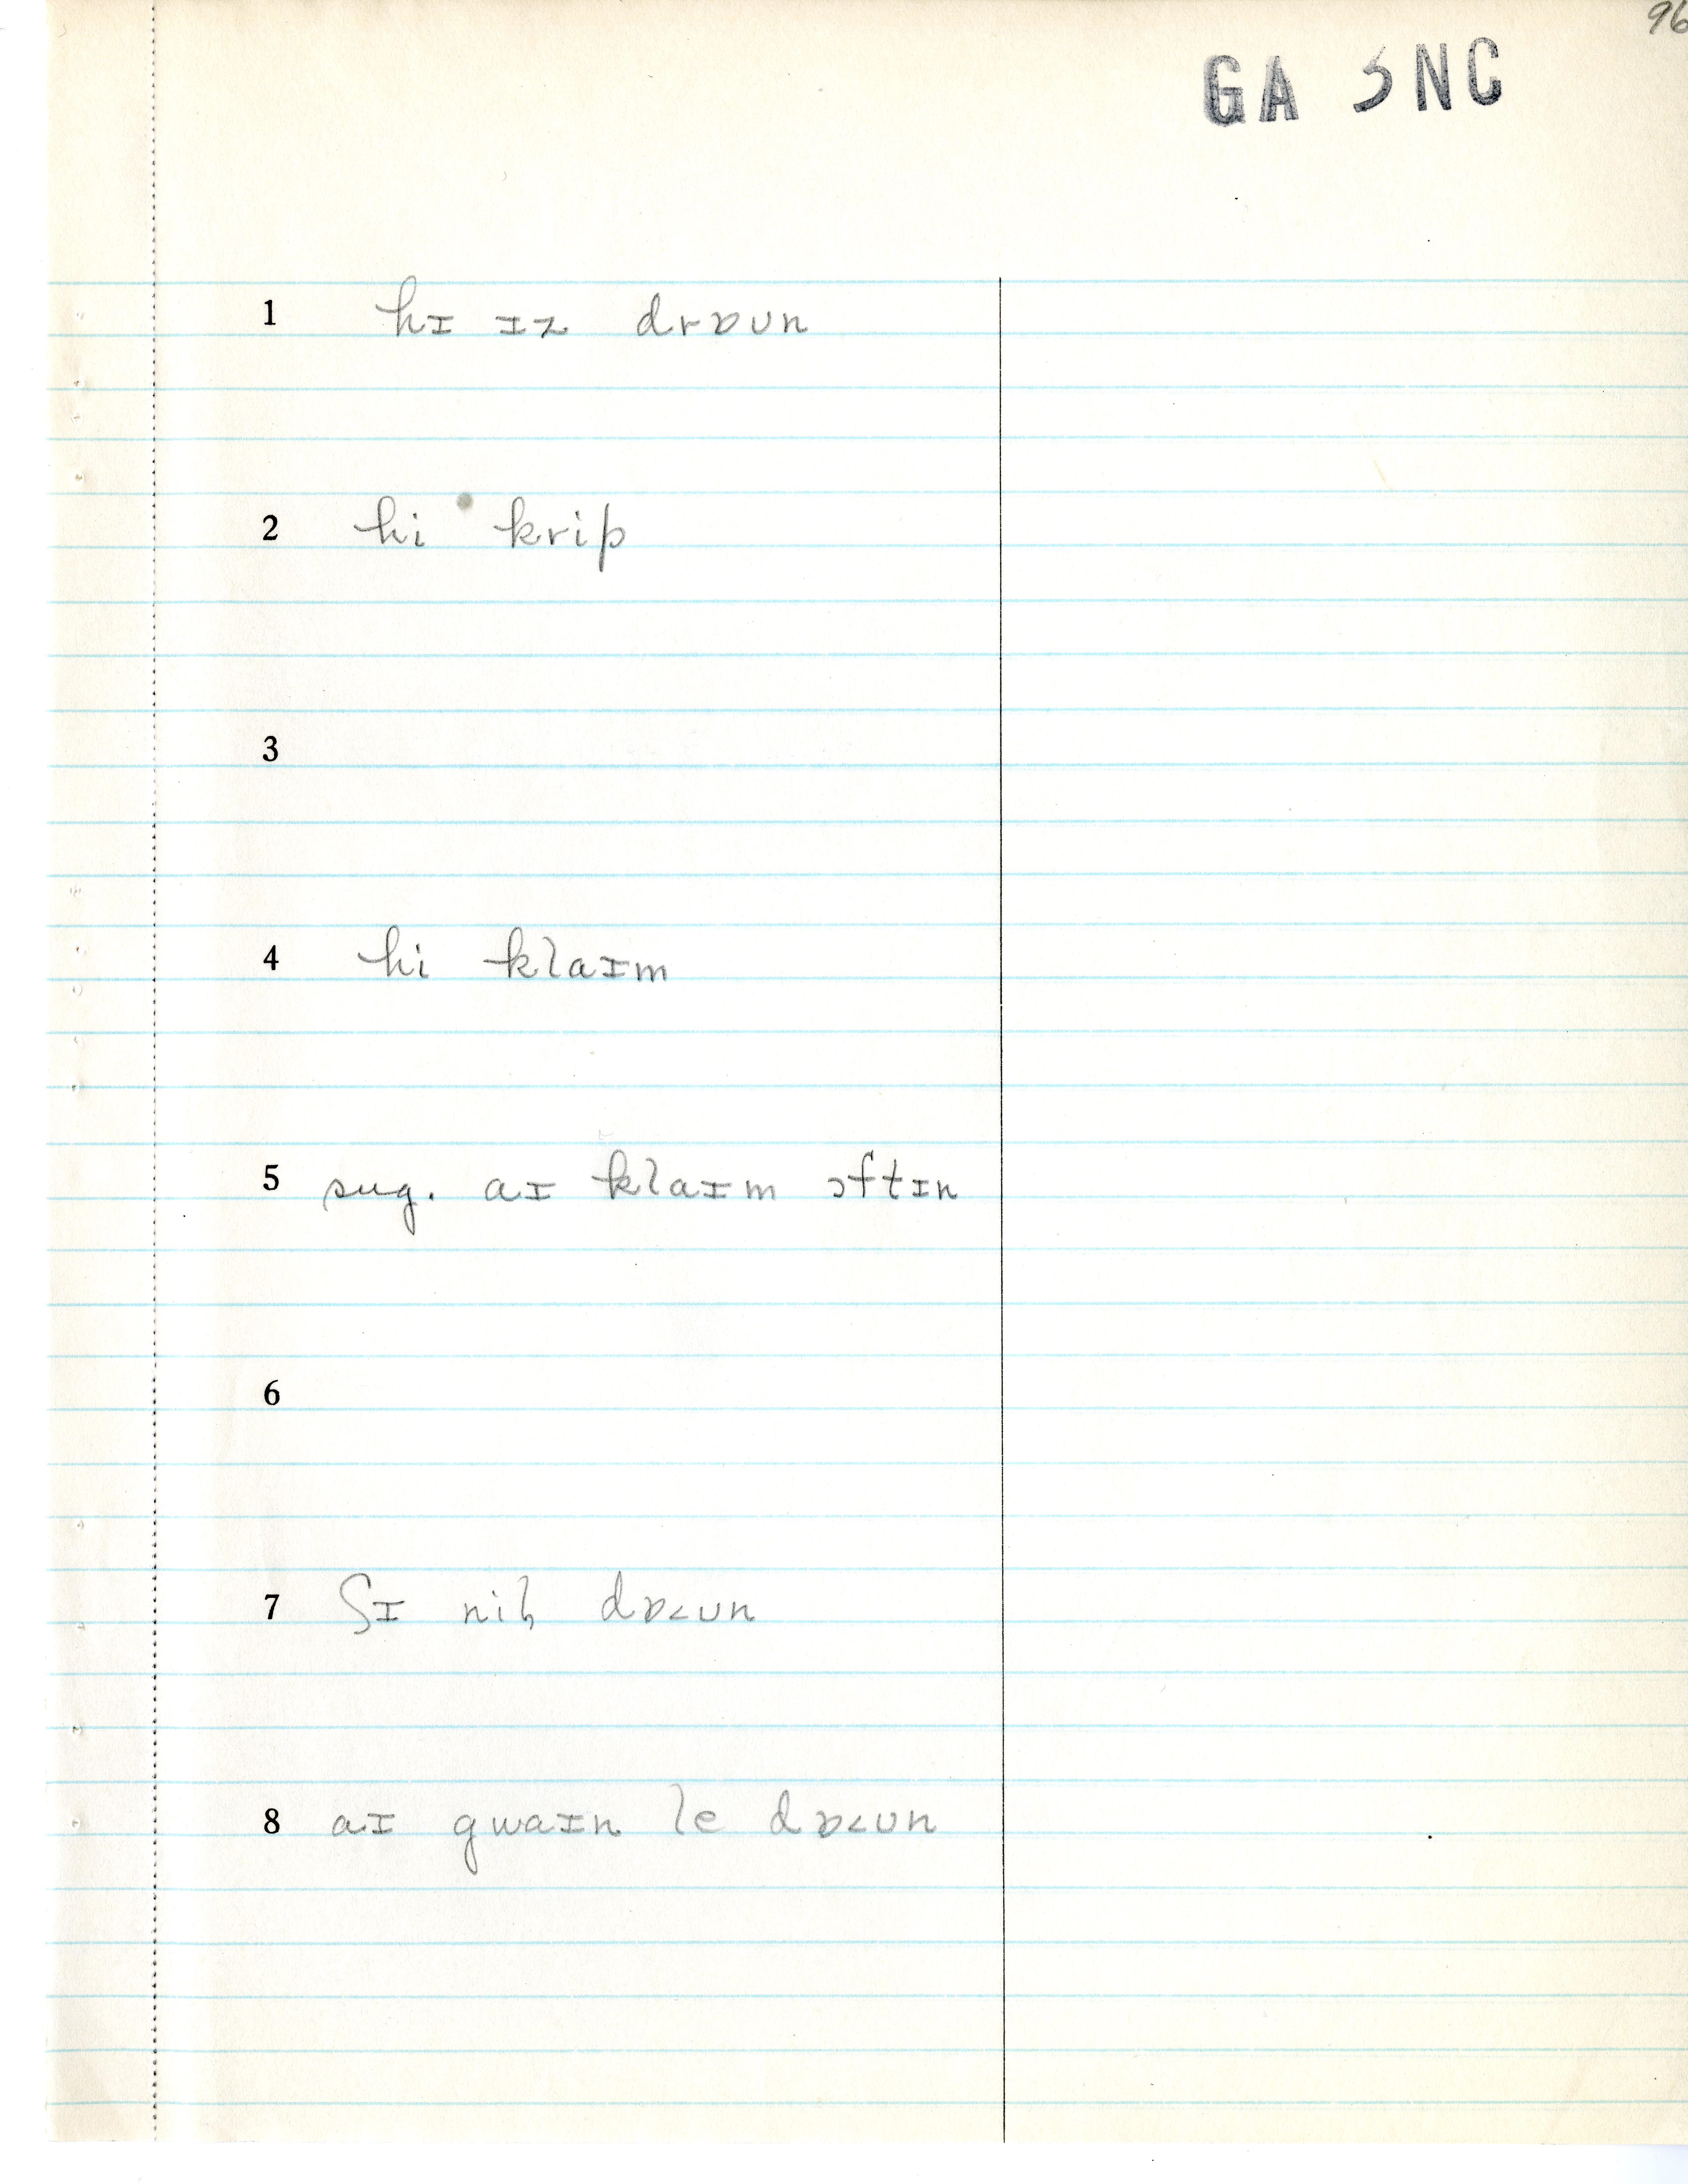 96
GA 5NC
1 hɪ ɪz drɒʊn
2 hi krip
3
4 hi klaɪm
5 sug. aɪ klaɪm ɔftɪn
6
7 ʃɪ niḷ dɒ˂ʊn
8 aɪ gwaɪn le dɒ˂ʊn